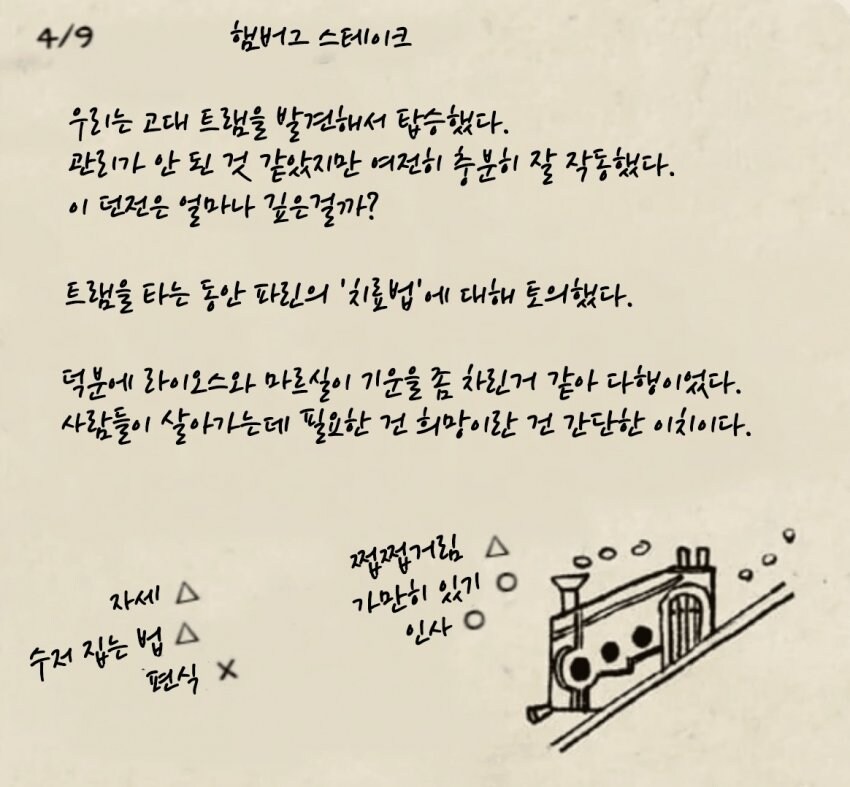 4/9 햄버그 스테이크
우리는 고대 트램을 발견해서 탑승했다.
관리가 안 된 것 같았지만 여전히 충분히 잘 작동했다.
이 던전은 얼마나 깊은걸까?
트램을 타는 동안 파린의 '치료법'에 대해 토의했다.
덕분에 라이오스와 마르실이 기운을 좀 차린거 같아 다행이었다.
사람들이 살아가는데 필요한 건 희망이란 건 간단한 이치이다.
자세 △
수저 집는 법 △
편식 ×
쩝쩝거림 △
가만히 있기 ○
인사 ○